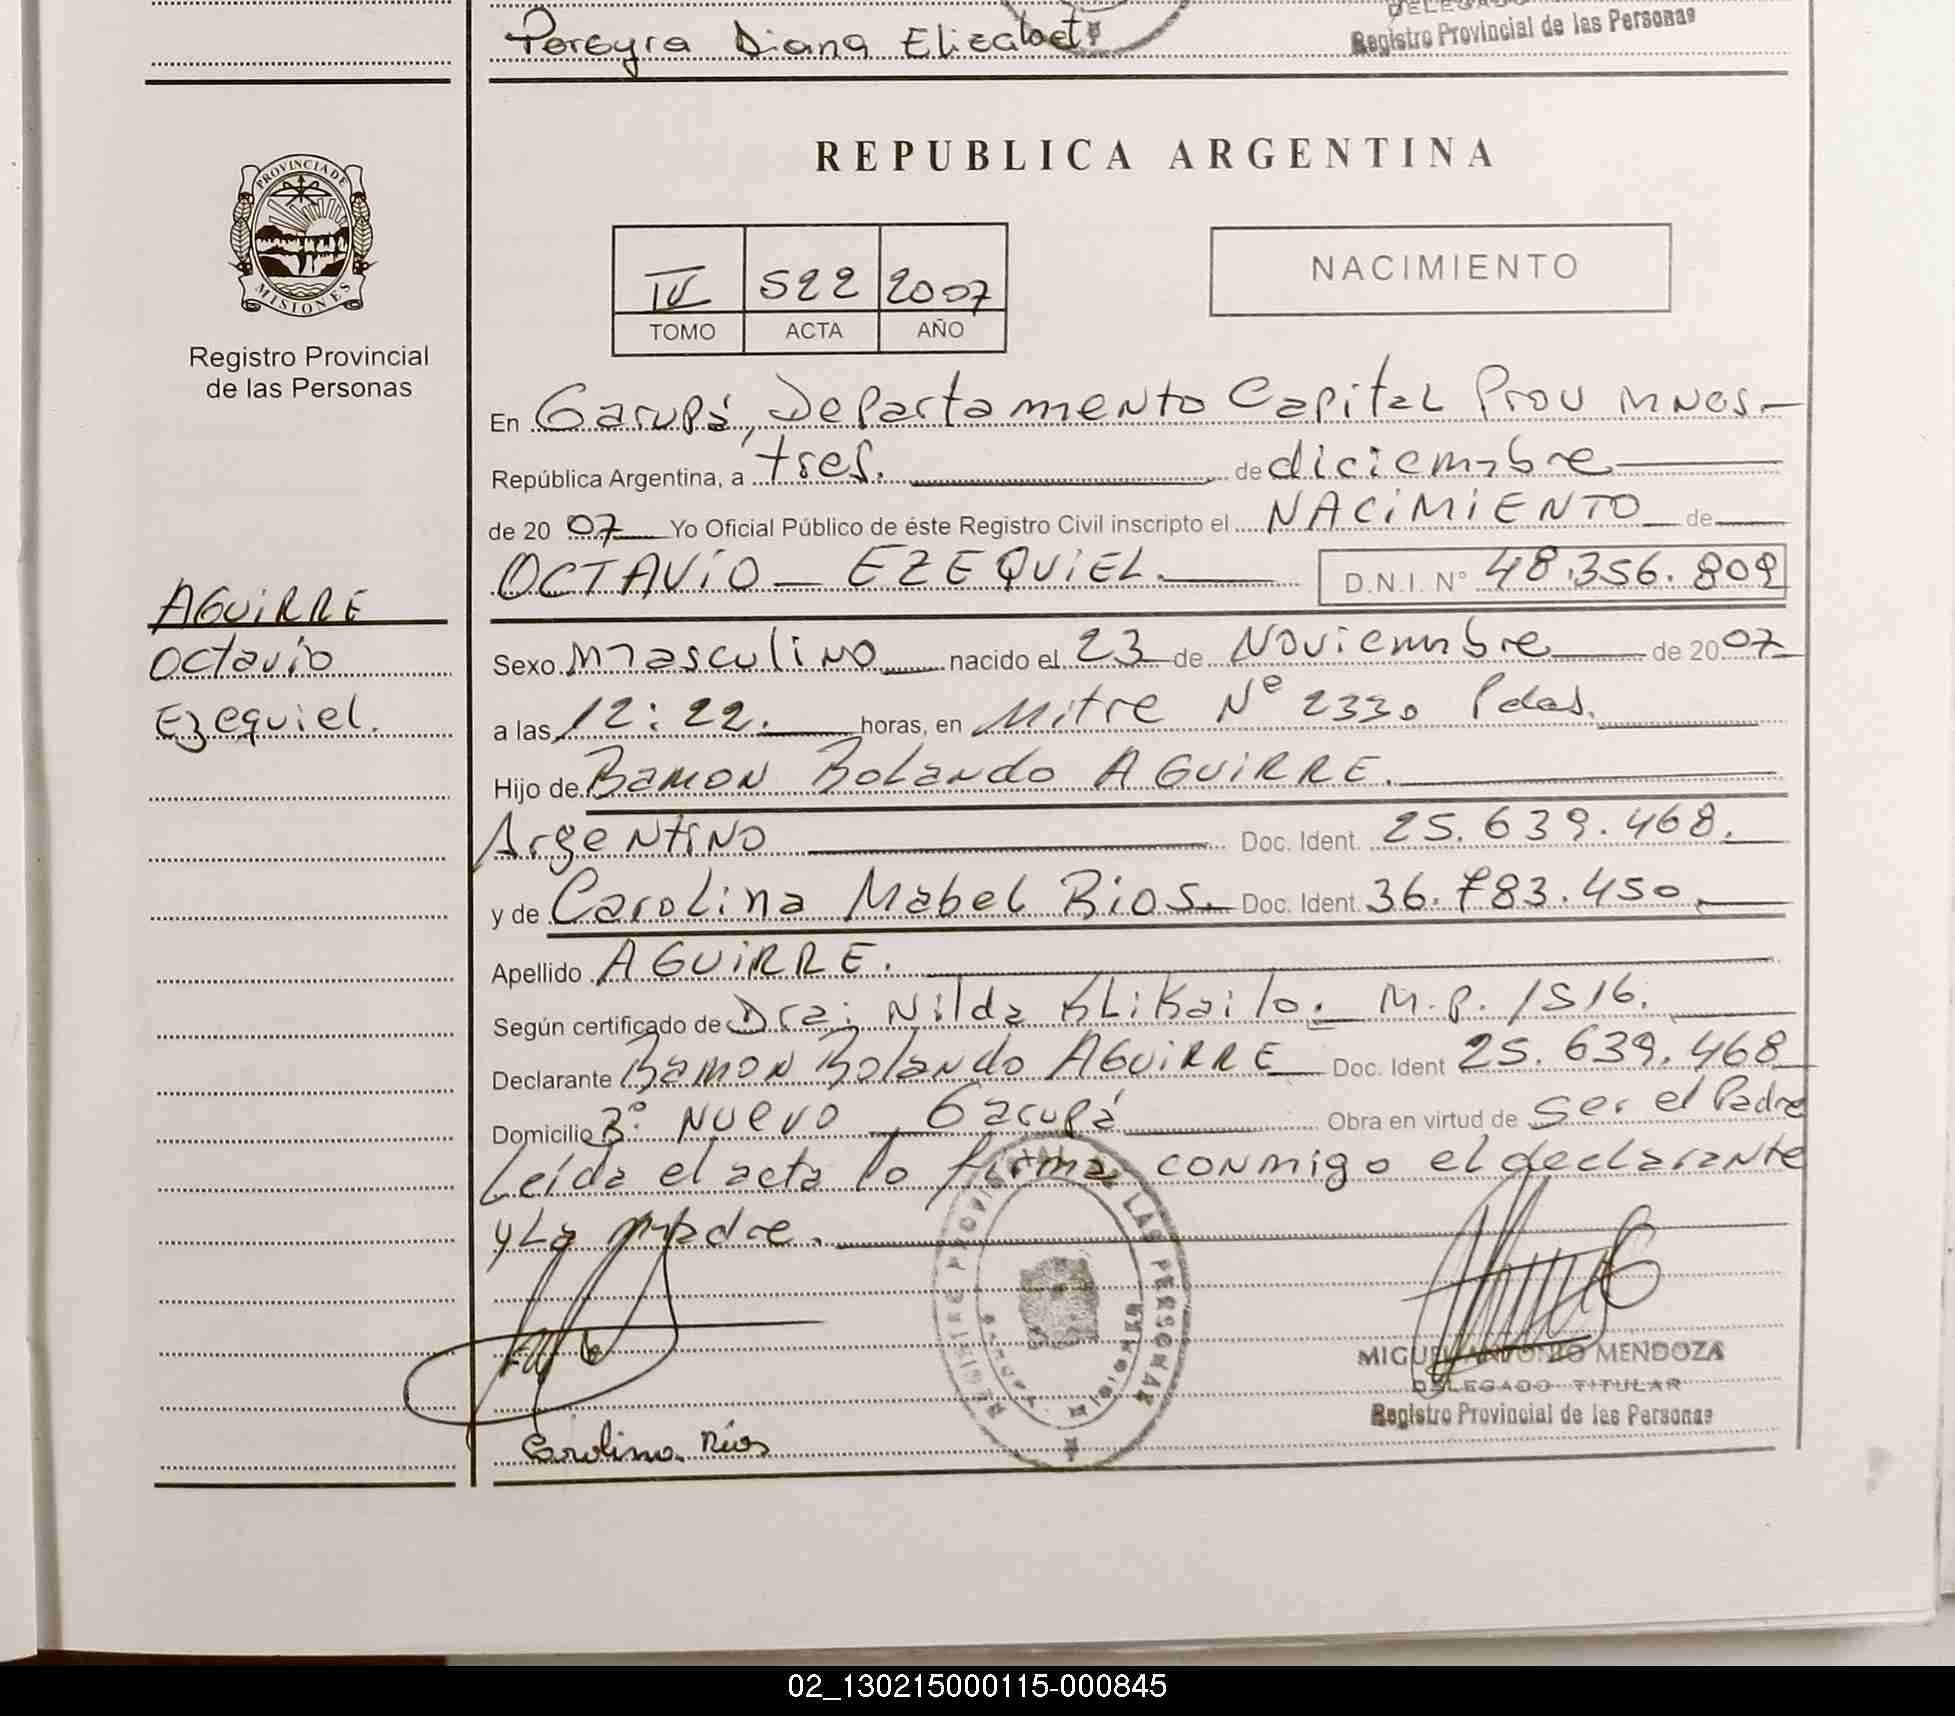 Pereyra Diana Elizabet
DELEGADO
Registro Provincial de las Personas
PROVINCIA DE
MISIONES
Registro Provincial
de las Personas
REPUBLICA ARGENTINA
IV 522 2007
TOMO ACTA AÑO
NACIMIENTO
En Garupá, Departamento Capital Prov Mnes.-
República Argentina, a tres. de diciembre
de 2007 Yo Oficial Público de éste Registro Civil inscripto el NACIMIENTO de
OCTAVIO - EZEQUIEL. D.N.I. N° 48.356.802
AGUIRRE
Octavio
Ezequiel.
Sexo masculino nacido el 23 de Noviembre de 2007
a las 12:22. horas, en Mitre Nº 2330 Pdas.
Hijo de Ramon Rolando AGUIRRE.
Argentino Doc. Ident. 25.639.468.
y de Carolina Mabel Rios. Doc. Ident. 36.783.450.
Apellido AGUIRRE.
Según certificado de Dra: Nilda Klikailo. M.P. 1516.
Declarante Ramon Rolando AGUIRRE Doc. Ident 25.639.468
Domicilio Bº NUEVO Garupá Obra en virtud de ser el Padre
Leída el acta lo firma conmigo el declarante
y La madre.
REGISTRO PROVINCIAL DE LAS PERSONAS
MIGUEL ANTONIO MENDOZA
DELEGADO TITULAR
Registro Provincial de las Personas
Carolina Rios
02_130215000115-000845